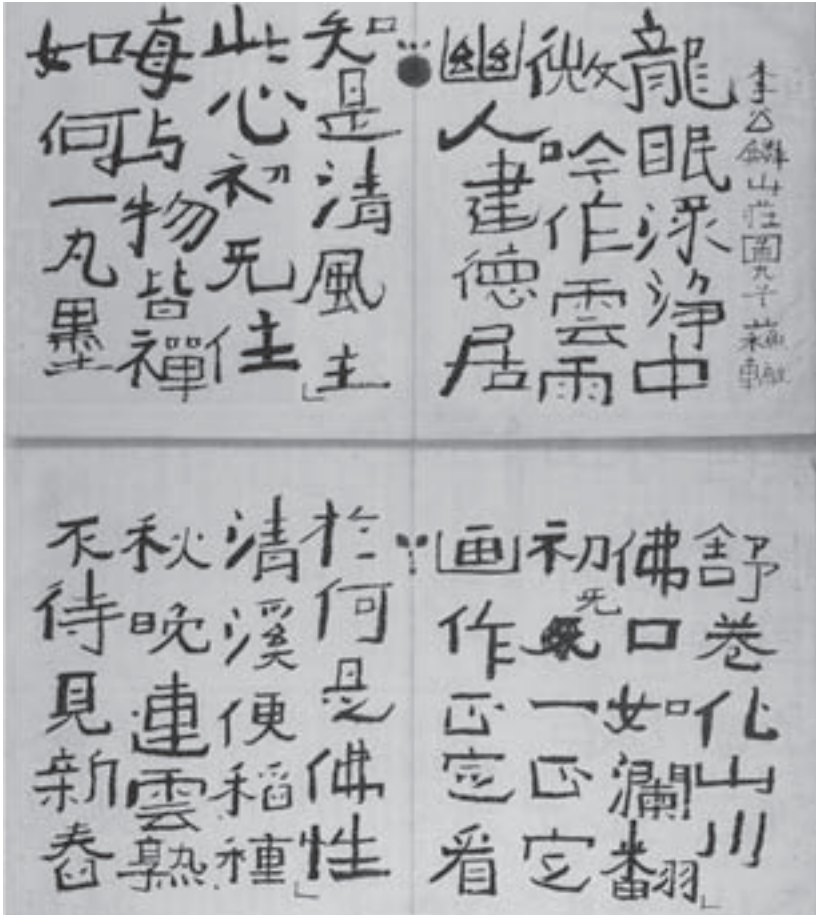 李公麟山荘圖九 蘇轍
龍眠淥淨中
微吟作雲雨
幽人建德居
知是清風主」
此心初无住
每与物皆禪
如何一丸墨
舒卷化山川」
佛口如瀾翻
初无一正定
画作正定看
於何是佛性」
清溪便稻種
秋晚連雲熟
不待見新舂